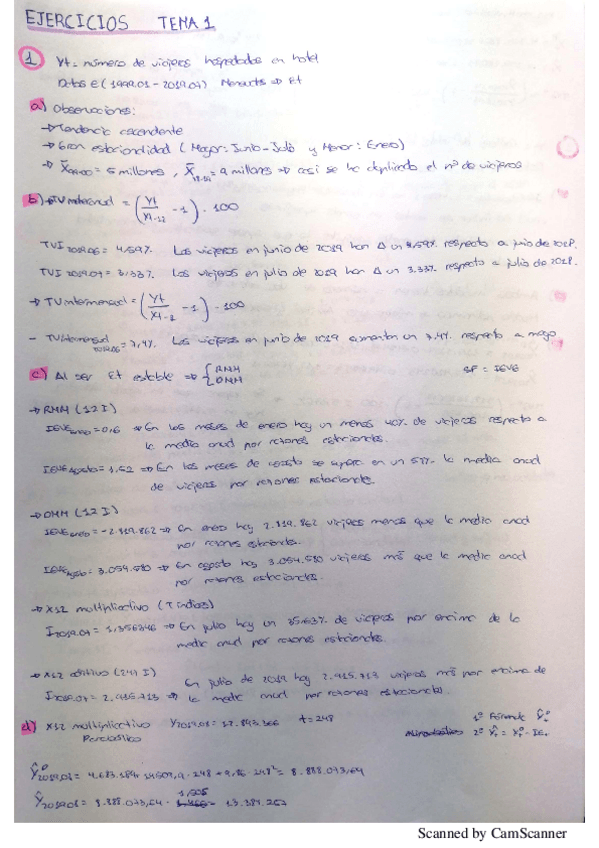 EJERCICIOS TEMA 1
1 Yt = número de viajeros hospedados en hotel
Datos ∈ (1999.01 - 2019.07) Mensuales ⇒ Et
a) Observaciones:
→ Tendencia ascendente
→ Gran estacionalidad (Mayor: Junio-Julio y Menor: Enero)
= 5 millones, = 9 millones ⇒ casi se ha duplicado el nº de viajeros
b) → TV interanual = (Yt / Yt-12 - 1) · 100
TVI 2019.06 = 4.59% Los viajeros en junio de 2019 han Δ un 4.59% respecto a junio de 2018.
TVI 2019.07 = 3.33% Los viajeros en julio de 2019 han Δ un 3.33% respecto a julio de 2018.
→ TV intermensual = - 1) · 100
- TV intermensual 2019.06 = 7,4% Los viajeros en junio de 2019 aumentan un 7,4% respecto a mayo
c) Al ser Et estable ⇒ { RMM DMM SF = IEVE
→ RMM (12 I)
IEVE enero = 0,6 ⇒ En los meses de enero hay un menos 40% de viajeros respecto a
la media anual por razones estacionales.
IEVE agosto = ⇒ En los meses de agosto se supera en un la media anual
de viajeros por razones estacionales.
→ DMM (12 I)
IEVE enero = -2.819.862 ⇒ En enero hay 2.819.862 viajeros menos que la media anual
por razones estacionales.
IEVE agosto = 3.054.580 ⇒ En agosto hay 3.054.580 viajeros más que la media anual
por razones estacionales.
→ X12 multiplicativo (T índices)
I 2019.07 = 1,356346 ⇒ En julio hay un 35.63% de viajeros por encima de la
media anual por razones estacionales.
→ X12 aditivo (247 I)
I 2019.07 = 2.415.713 ⇒ En julio de 2019 hay 2.415.713 viajeros más por encima de
la media anual por razones estacionales.
d) X12 multiplicativo Y 2019.08 = t = 248 1º
2º
= 8.888.073,64
= 8.888.073,64 · 1,505
Scanned by CamScanner